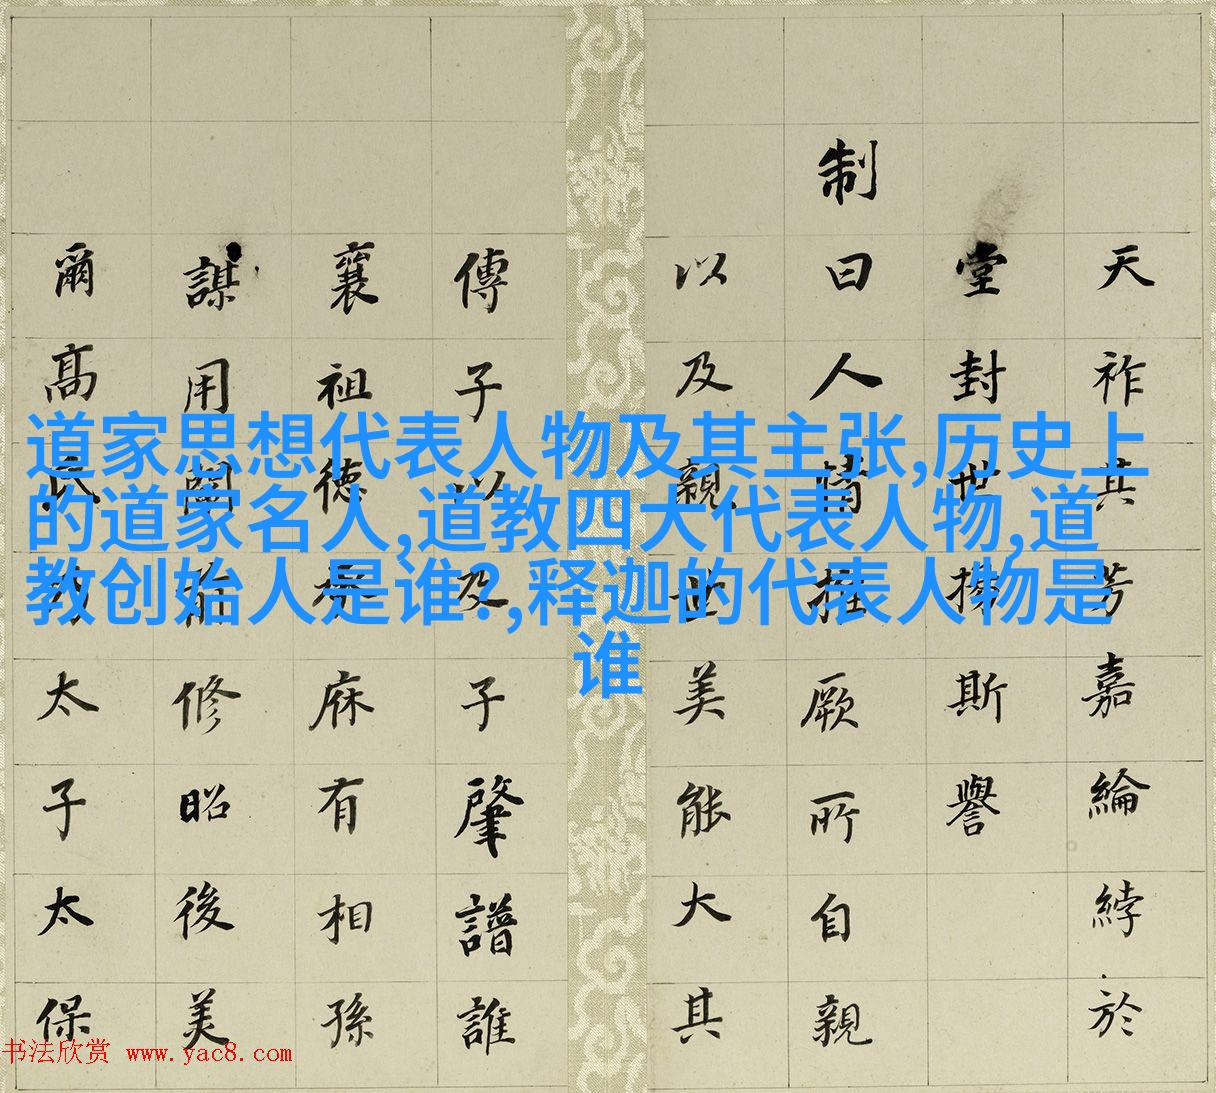 道家思想代表人物及其主张,历史上
的道家名人,道教四大代表人物,道
教创始人是谁?,释迦的代表人物是
谁
天祚其芳嘉綸綍於
堂封世斯譽
制曰人情推厥所自親
以及親世美能大其
傳子以及子肇譜誰
襄祖德麻有相孫
謀用修昭後美
爾高氏太子太保
书法欣赏 www.yac8.com